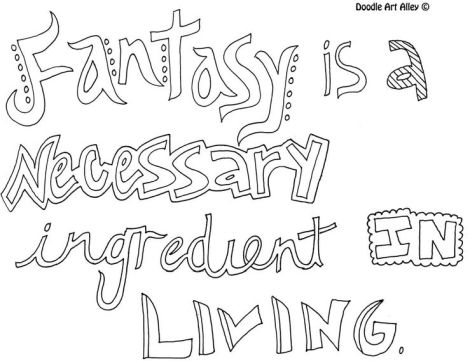 Doodle Art Alley ©
Fantasy is a
Necessary
ingredient IN
LIVING.